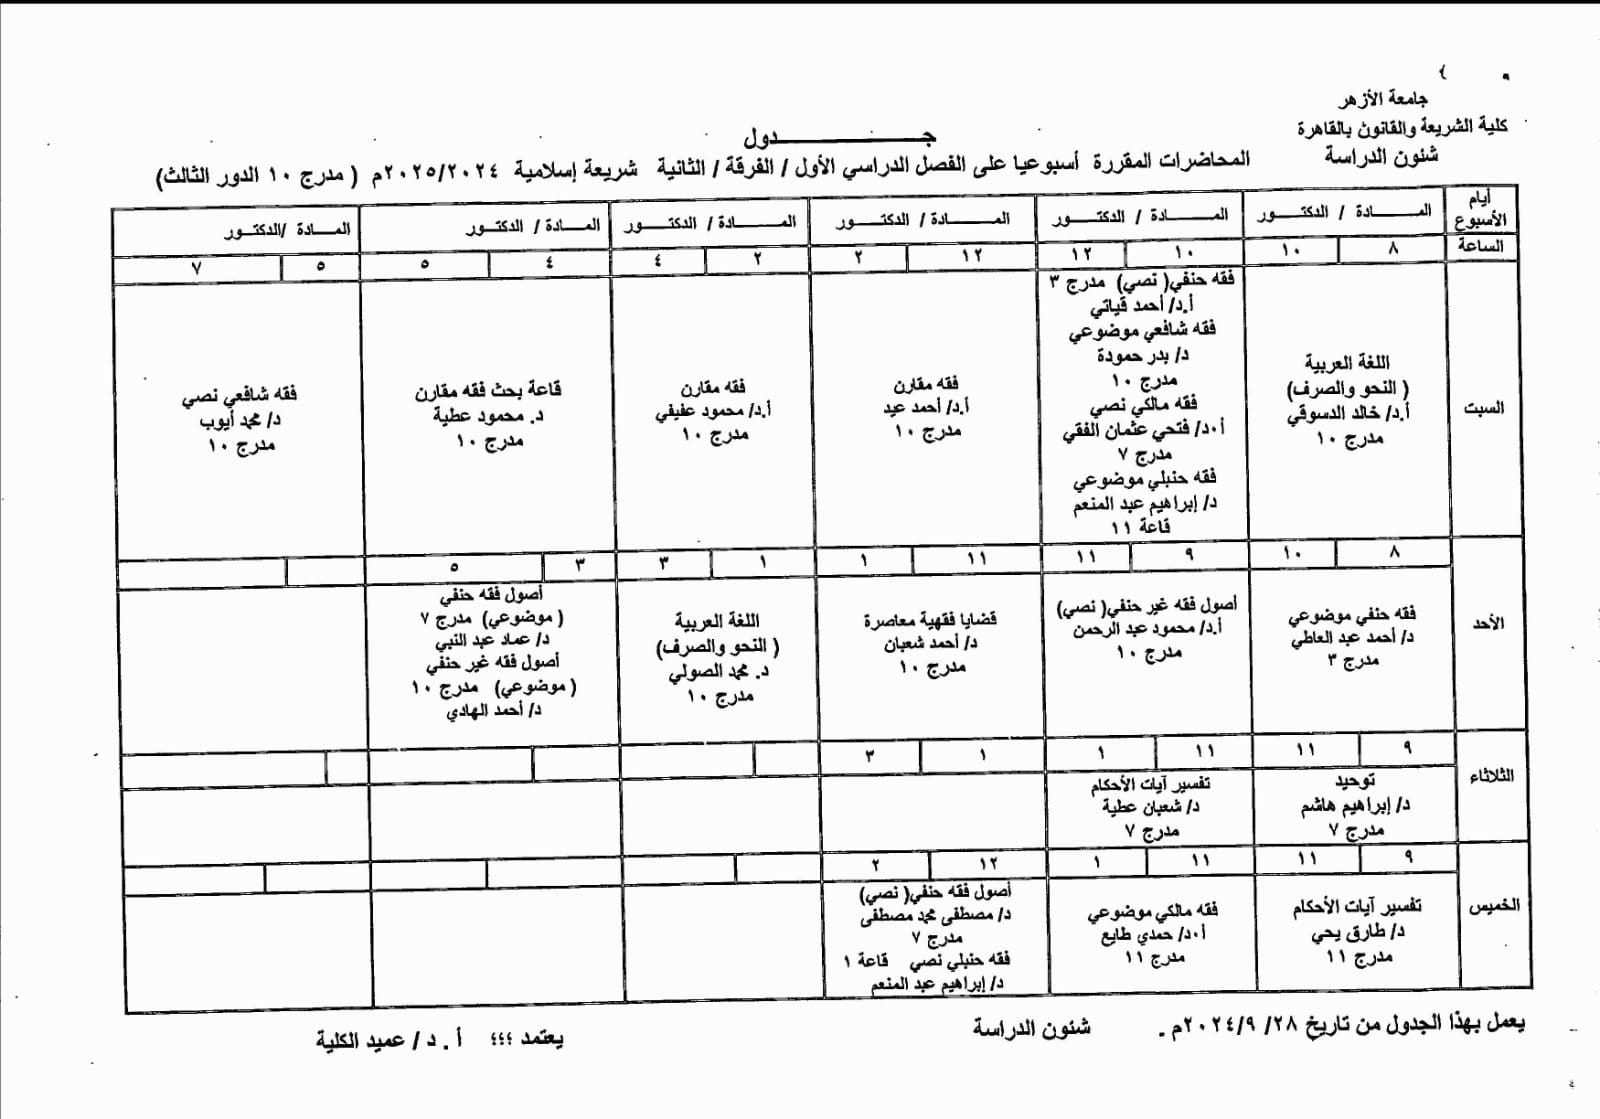 جامعة الأزهر
كلية الشريعة والقانون بالقاهرة
شئون الدراسة
جـــــــــــدول
المحاضرات المقررة أسبوعيا على الفصل الدراسي الأول / الفرقة / الثانية شريعة إسلامية ٢٠٢٥/٢٠٢٤م ( مدرج ١٠ الدور الثالث)
أيام الأسبوع
المـــــادة / الدكتـــور
المـــــادة / الدكتـــور
المـــــادة / الدكتـــور
المـــــادة / الدكتـــور
المـــادة / الدكتـــور
المـــادة /الدكتـور
الساعة
٨ ١٠ ١٠ ١٢ ١٢ ٢ ٢ ٤ ٤ ٥ ٥ ٧
السبت
اللغة العربية
( النحو والصرف)
أ.د/ خالد الدسوقي
مدرج ١٠
فقه حنفي( نصي) مدرج ٣
أ.د/ أحمد قياتي
فقه شافعي موضوعي
د/ بدر حمودة
مدرج ١٠
فقه مالكي نصي
أ.د/ فتحي عثمان الفقي
مدرج ٧
فقه حنبلي موضوعي
د/ إبراهيم عبد المنعم
قاعة ١١
فقه مقارن
أ.د/ أحمد عيد
مدرج ١٠
فقه مقارن
أ.د/ محمود عفيفي
مدرج ١٠
قاعة بحث فقه مقارن
د. محمود عطية
مدرج ١٠
فقه شافعي نصي
د/ محمد أيوب
مدرج ١٠
الأحد
٨ ١٠ ٩ ١١ ١١ ١ ١ ٣ ٣ ٥
فقه حنفي موضوعي
د/ أحمد عبد العاطي
مدرج ٣
أصول فقه غير حنفي( نصي)
أ.د/ محمود عبد الرحمن
مدرج ١٠
قضايا فقهية معاصرة
د/ أحمد شعبان
مدرج ١٠
اللغة العربية
( النحو والصرف)
د. محمد الصولي
مدرج ١٠
أصول فقه حنفي
( موضوعي) مدرج ٧
د/ عماد عبد النبي
أصول فقه غير حنفي
( موضوعي) مدرج ١٠
د/ أحمد الهادي
الثلاثاء
٩ ١١ ١١ ١ ١ ٣
توحيد
د/ إبراهيم هاشم
مدرج ٧
تفسير آيات الأحكام
د/ شعبان عطية
مدرج ٧
الخميس
٩ ١١ ١١ ١ ١٢ ٢
تفسير آيات الأحكام
د/ طارق يحي
مدرج ١١
فقه مالكي موضوعي
أ.د/ حمدي طايع
مدرج ١١
أصول فقه حنفي( نصي)
د/ مصطفى محمد مصطفى
مدرج ٧
فقه حنبلي نصي قاعة ١
د/ إبراهيم عبد المنعم
يعمل بهذا الجدول من تاريخ ٢٨/ ٢٠٢٤/٩م .
شئون الدراسة
يعتمد ،،، أ . د / عميد الكلية